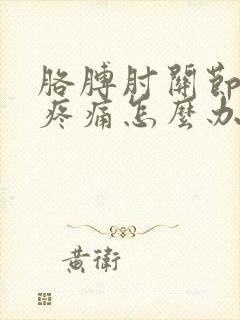 胳膊肘關節
疼痛怎麼办
黃衛